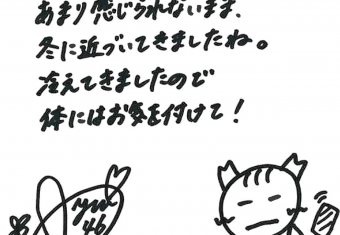 あまり感じられないまま、
冬に近づいてきましたね。
冷えてきましたので
体にはお気を付けて！
46